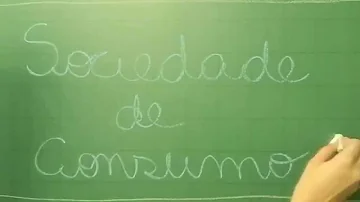 Sociedade
de
Consumo